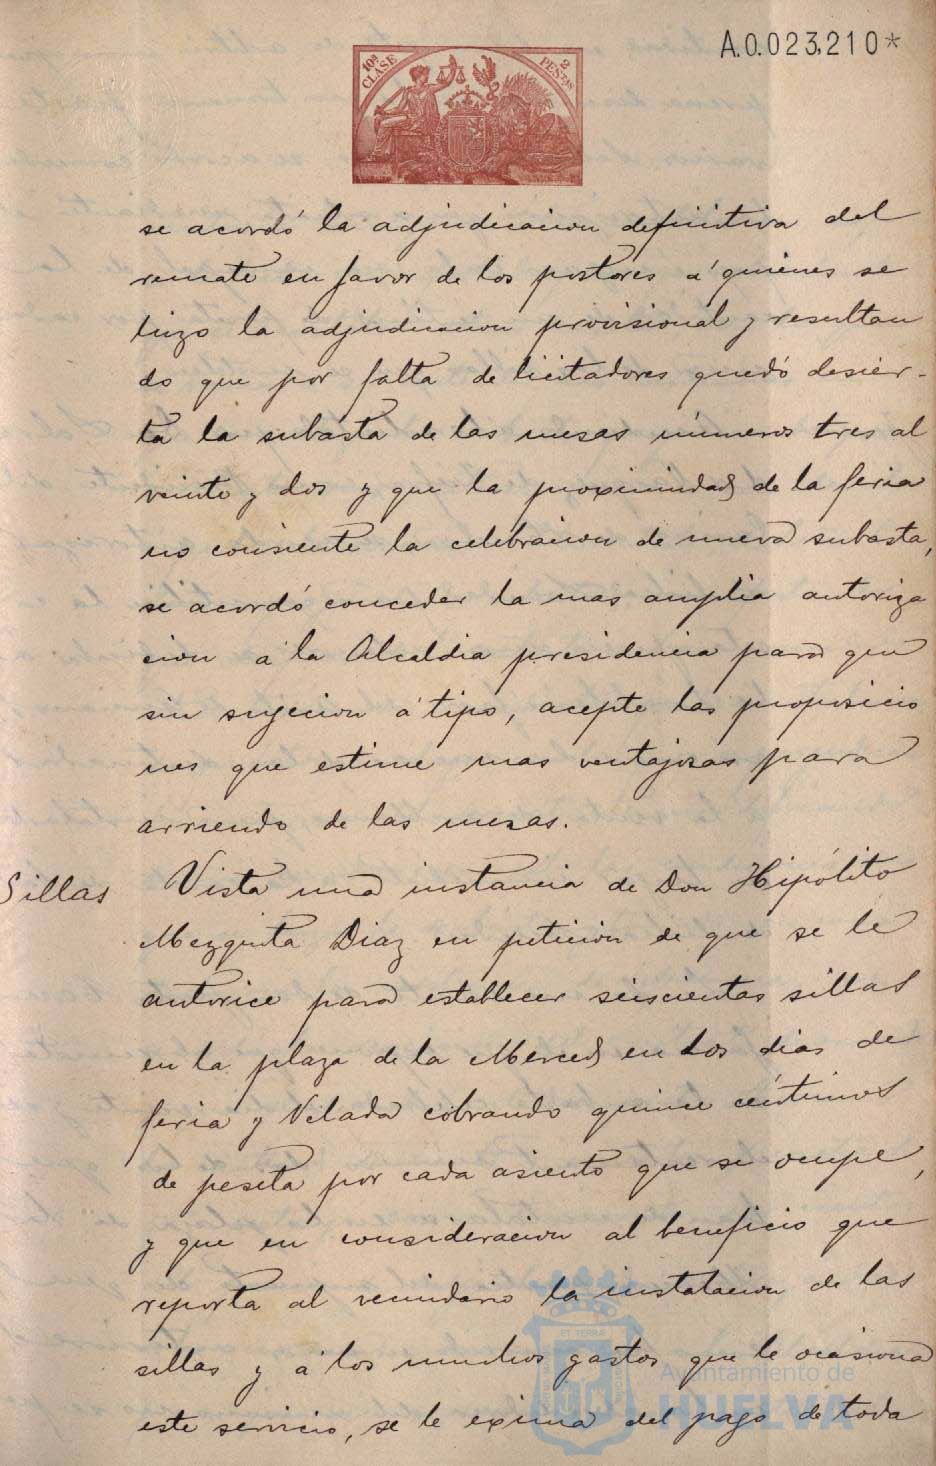 A.0.023,210*
10ª CLASE 2 PESETAS
se acordó la adjudicacion definitiva del
remate en favor de los postores á quienes se
hizo la adjudicacion provisional y resultan
do que por falta de licitadores quedó desier-
ta la subasta de las mesas números tres al
veinte y dos y que la proximidad de la feria
no consiente la celebracion de nueva subasta,
se acordó conceder la mas amplia autoriza
cion á la Alcaldia presidencia para que
sin sujecion á tipo, acepte las proposicio
nes que estime mas ventajosas para
arriendo de las mesas.
Sillas
Vista una instancia de Don Hipólito
Mezquita Diaz en peticion de que se le
autorice para establecer seiscientas sillas
en la plaza de la Merced en los dias de
feria y Velada cobrando quince céntimos
de peseta por cada asiento que se ocupe,
y que en consideracion al beneficio que
reporta al vecindario la instalacion de las
sillas y á los muchos gastos que le ocasiona
este servicio, se le exima del pago de toda
Ayuntamiento de
HUELVA